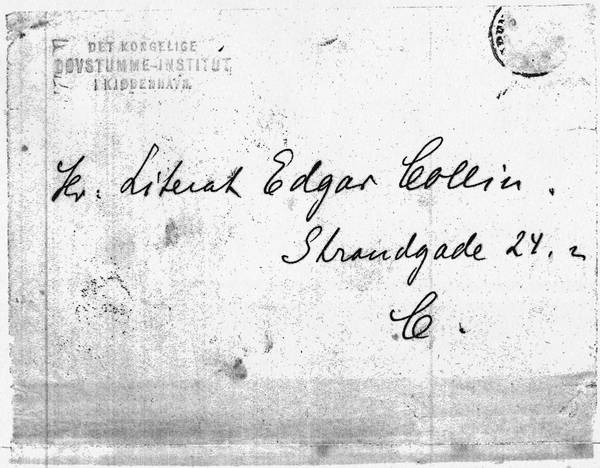 DET KONGELIGE
DØVSTUMME-INSTITUT
I KJØBENHAVN.
Hr. Literat Edgar Collin.
Strandgade 24. 2
C.